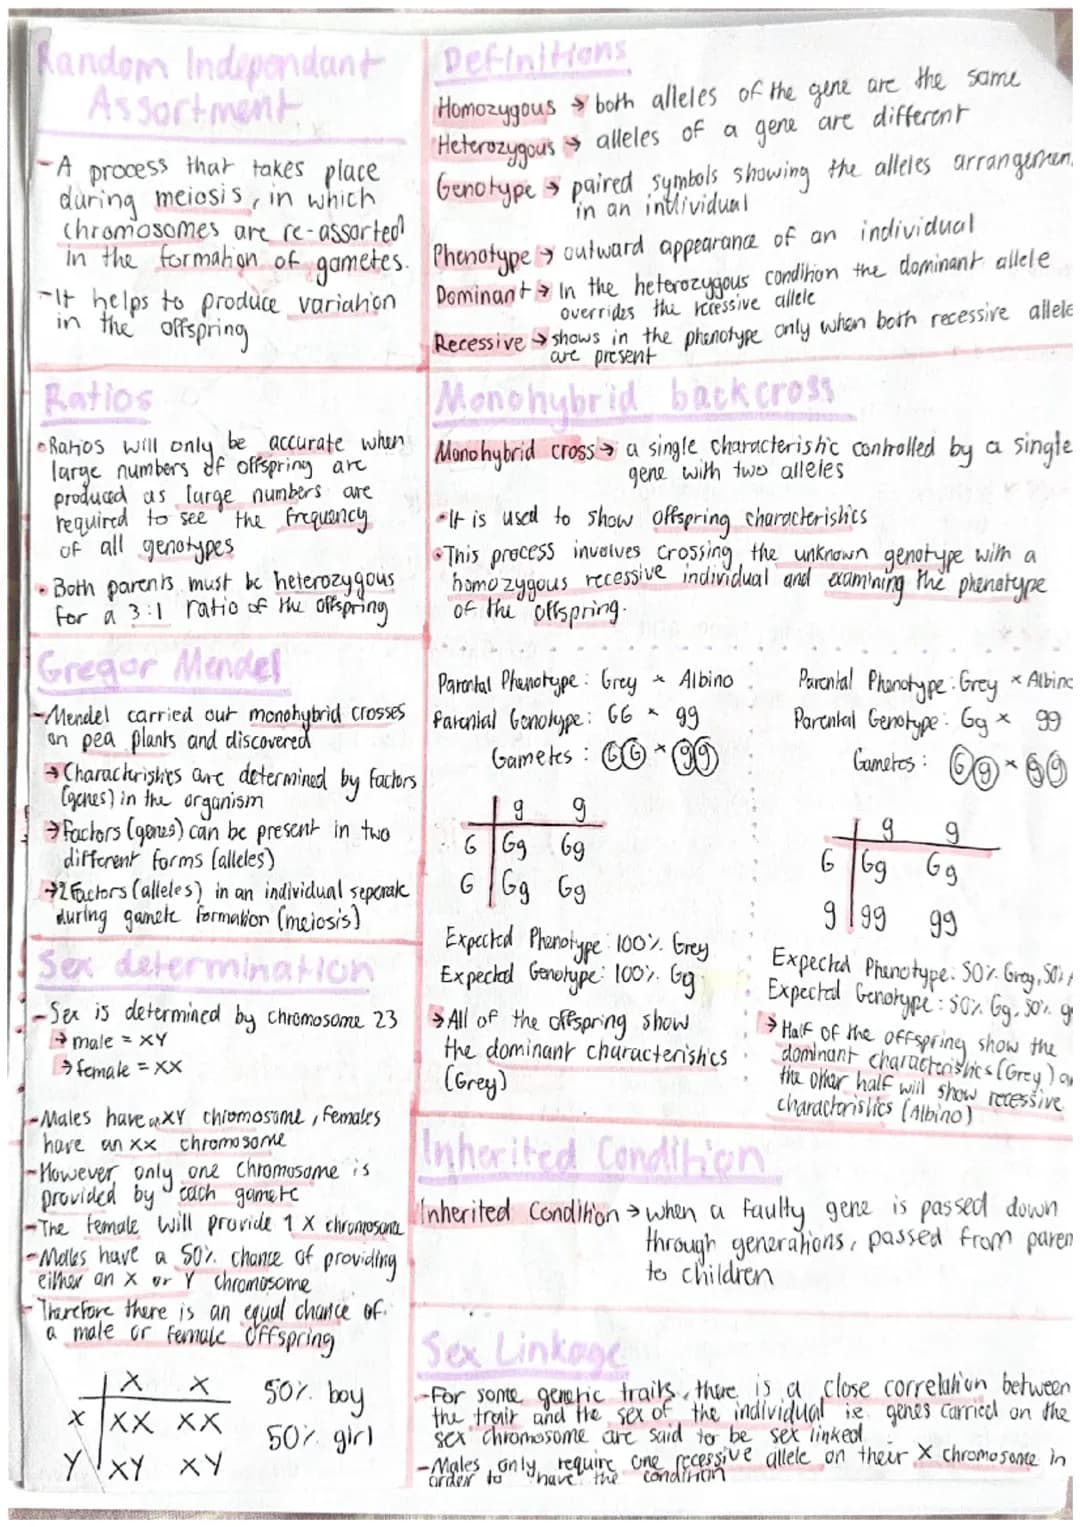 Random Independant
Assortment
-A process that takes place
during meiosis, in which
chromosomes are re-assorted
in the formation of gametes.
-It helps to produce variation
in the offspring
Definitions
Homozygous → both alleles of the gene are the same
Heterozygous → alleles of a gene are different
Genotype → paired symbols showing the alleles arrangemen
in an individual
Phenotype → outward appearance of an individual
Dominant → In the heterozygous condition the dominant allele
overrides the recessive allele
Recessive → shows in the phenotype only when both recessive allele
are present
Ratios
• Ratios will only be accurate when
large numbers of offspring are
produced as large numbers are
required to see the frequency
of all genotypes
• Both parents must be heterozygous
for a 3:1 ratio of the offspring
Monohybrid backcross
Monohybrid cross → a single characteristic controlled by a single
gene with two alleles
•It is used to show offspring characteristics
•This process involves crossing the unknown genotype with a
homozygous recessive individual and examining the phenotype
of the offspring.
Gregor Mendel
-Mendel carried out monohybrid crosses
on pea plants and discovered
→ Charachristics are determined by factors
(genes) in the organism
→ Factors (genes) can be present in two
different forms (alleles)
→ 2 Factors (alleles) in an individual seperate
during gamete formation (meiosis)
Parental Phenotype : Grey × Albino
Parental Genotype : GG × gg
Gametes : G G × g g
g g
G Gg Gg
G Gg Gg
Expected Phenotype: 100% Grey
Expected Genotype: 100% Gg
→ All of the offspring show
the dominant characteristics
(Grey)
Parental Phenotype : Grey × Albino
Parental Genotype : Gg × gg
Gametes : G g × g g
g g
G Gg Gg
g gg gg
Expected Phenotype: 50% Grey, 50% A
Expected Genotype : 50% Gg, 50% g
→ Half of the offspring show the
dominant characteristics (Grey) a
the other half will show recessive
characteristics (Albino)
Sex determination
-Sex is determined by chromosome 23
→ male = XY
→ female = XX
-Males have an XY chromosome, females
have an XX chromosome
-However only one chromosome is
provided by each gamete
-The female will provide 1 X chromosome
-Males have a 50% chance of providing
either an X or Y chromosome
-Therefore there is an equal chance of
a male or female offspring
X X
X XX XX
Y XY XY
50% boy
50% girl
Inherited Condition
Inherited Condition → when a faulty gene is passed down
through generations, passed from paren
to children
Sex Linkage
-For some genetic traits, there is a close correlation between
the trait and the sex of the individual ie. genes carried on the
sex chromosome are said to be sex linked
-Males only require one recessive allele on their X chromosome in
order to have the condition